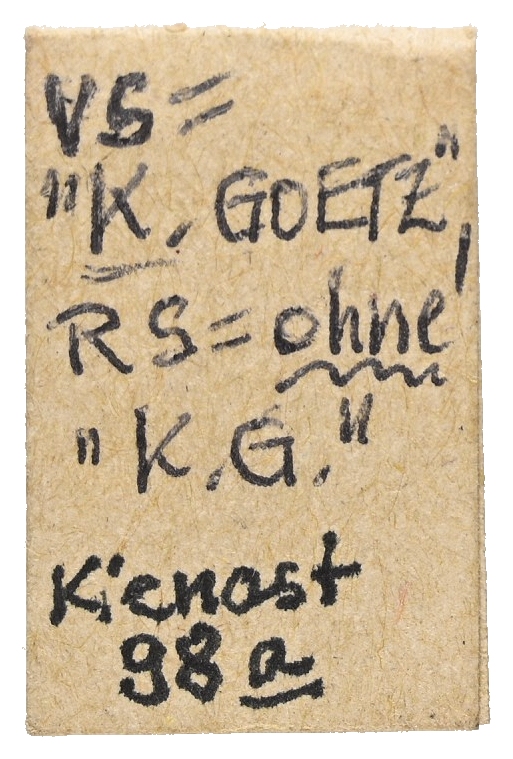 VS=
"K. GOETZ",
RS=ohne
"K.G."
Kienast
98a